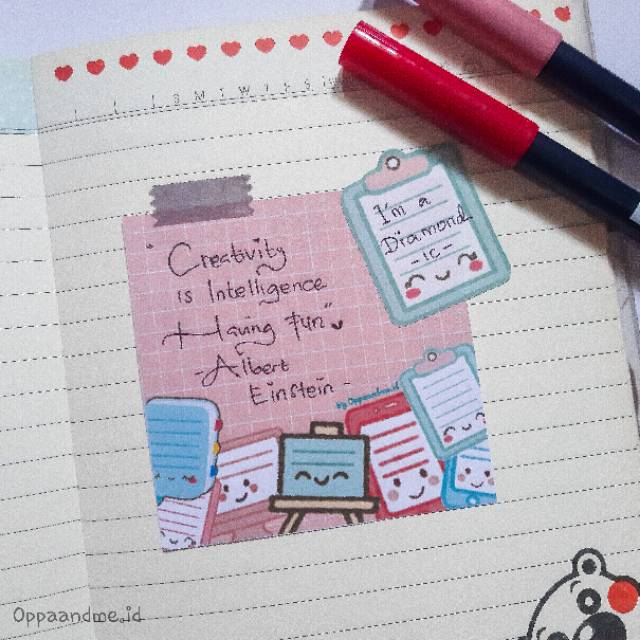 Creativity
is Intelligence
Having fun"
-Albert
Einstein-
I'm a
Diamond
-ic-
by Oppaandme.id
Oppaandme.id